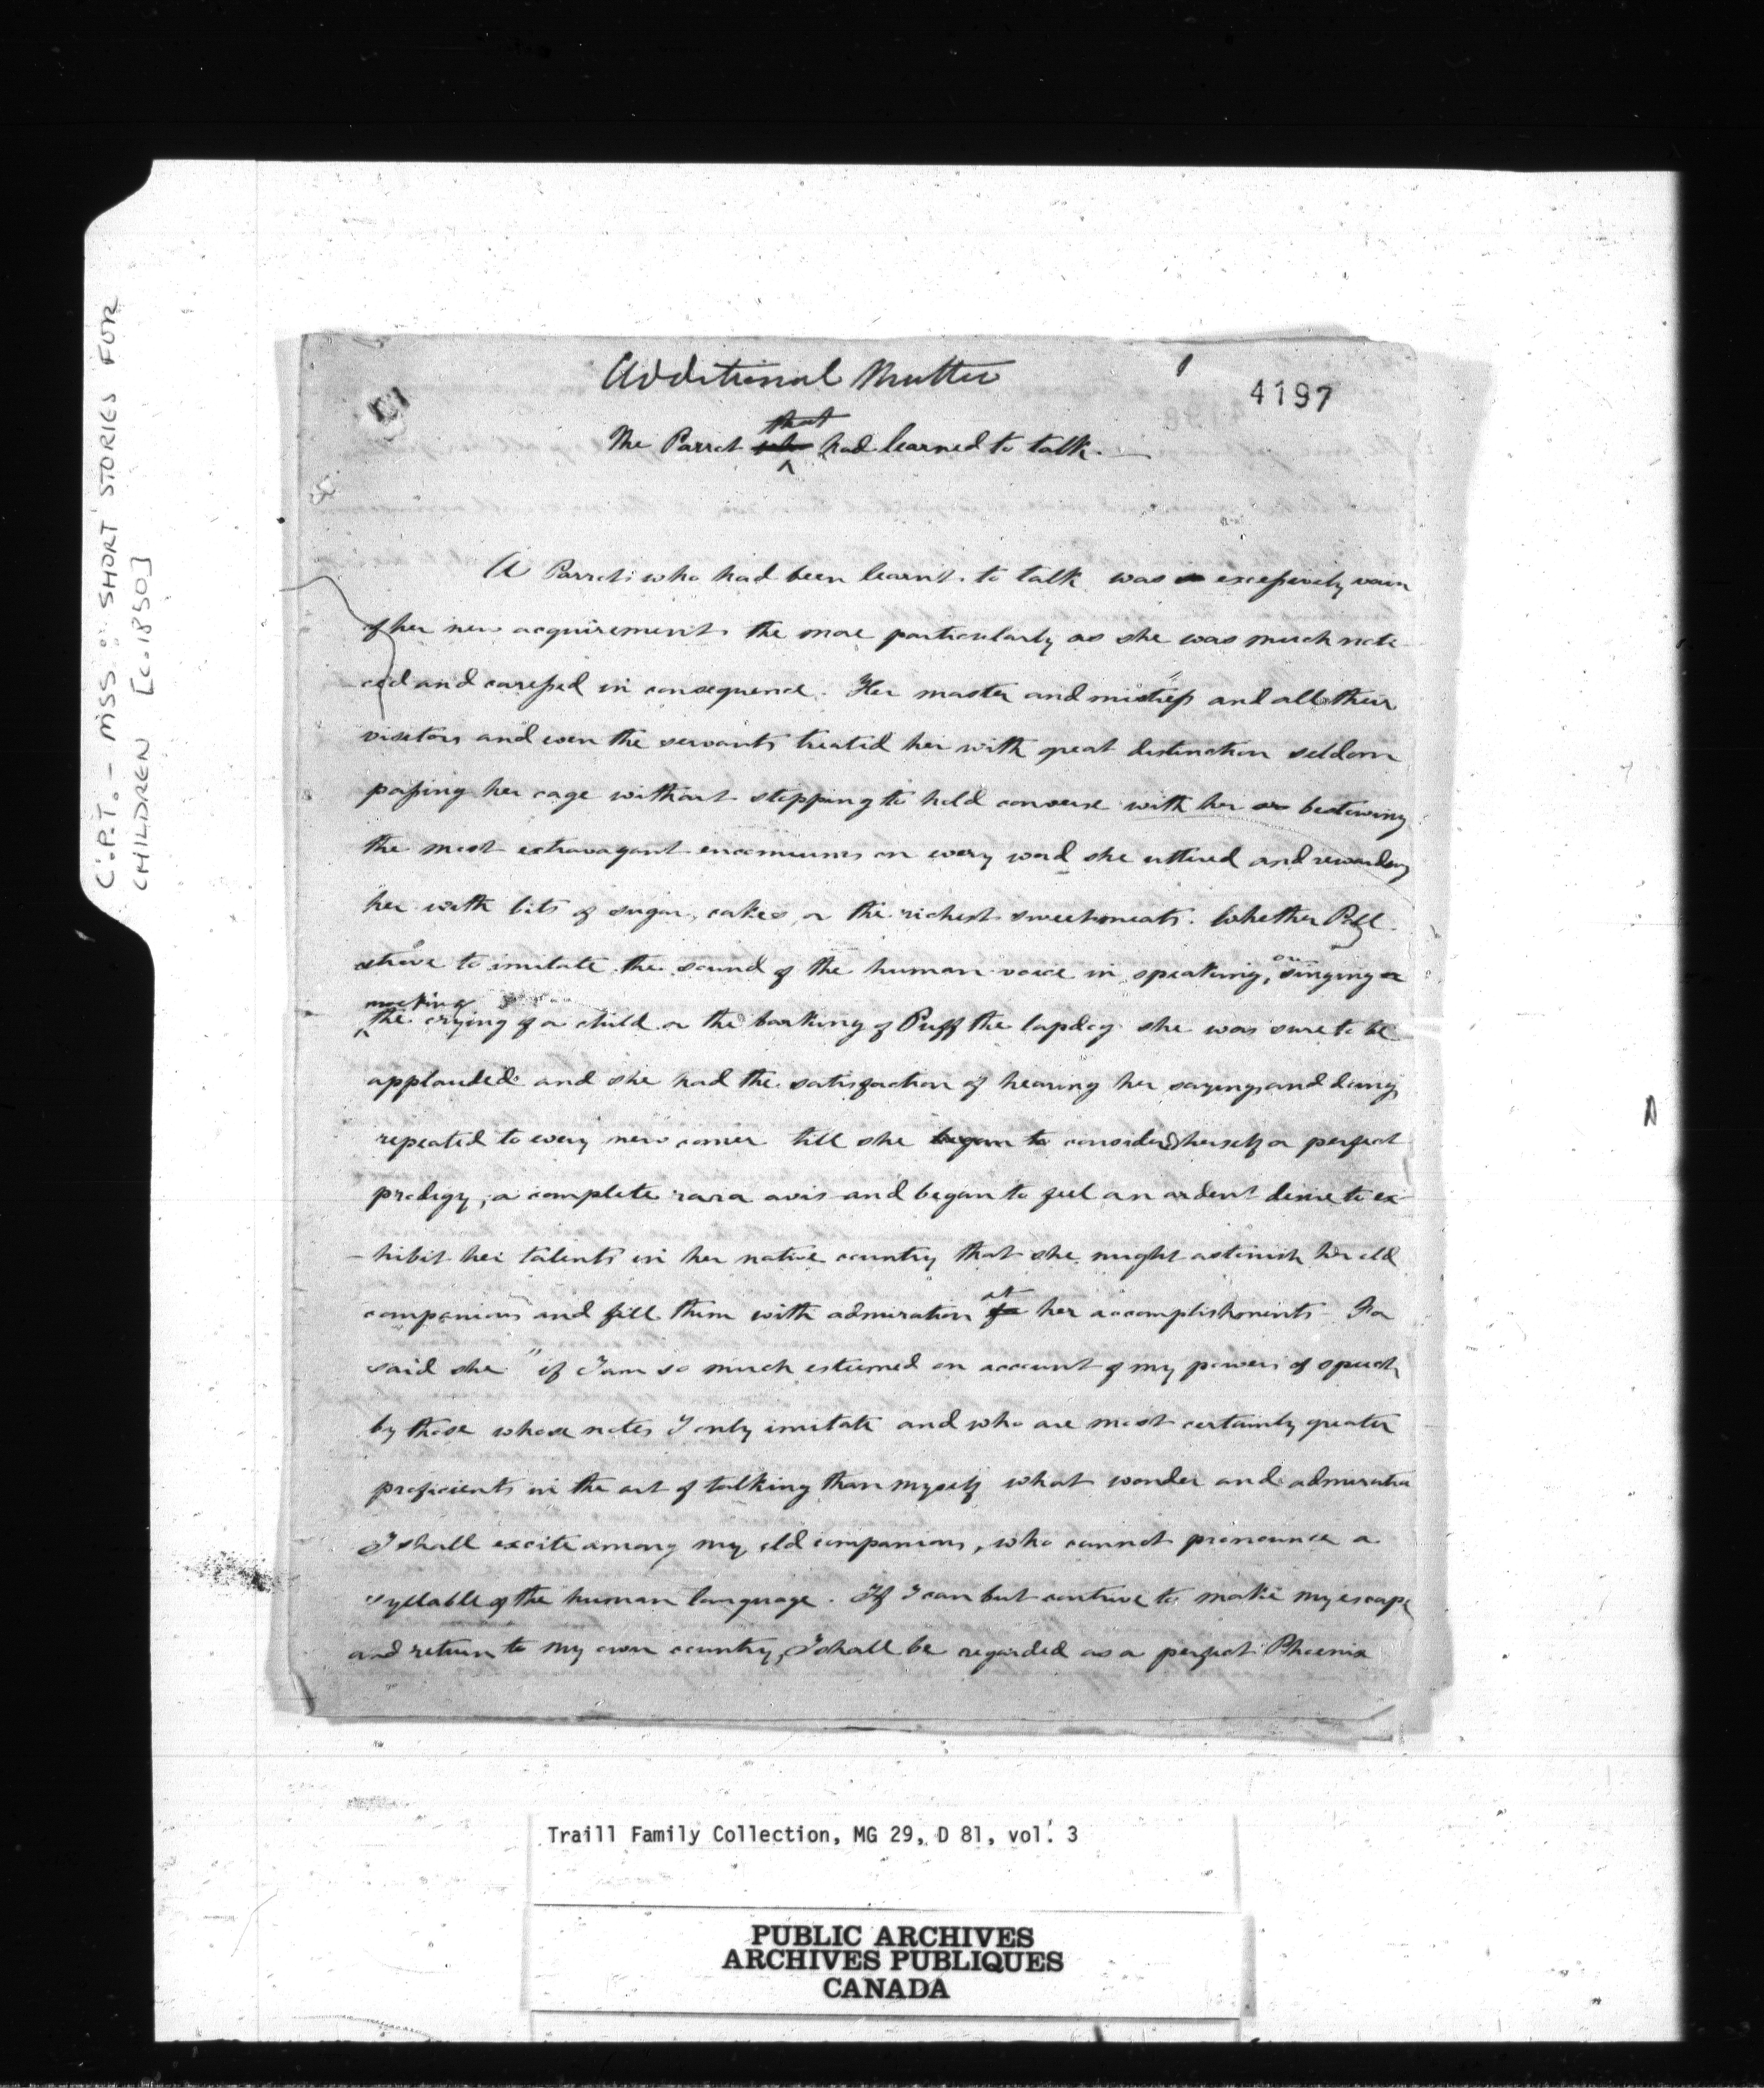 C.P.T. - MSS: SHORT STORIES FOR
CHILDREN [c.1850]
Additional Matter
4197
that
The Parrot who had learned to talk.
A Parrot who had been learnt to talk was excessively vain
of her new acquirements the more particularly as she was much noti
ced and caressed in consequence. Her master and mistress and all their
visitors and even the servants treated her with great distinction seldom
passing her cage without stopping to hold converse with her or bestowing
the most extravagant encomiums on every word she uttered and rewarding
her with bits of sugar, cakes, or the richest sweetmeats. Whether Poll
strove to imitate the sound of the human voice in speaking, or singing or
mocking
the crying of a child or the barking of Puff the lapdog she was sure to be
applauded and she had the satisfaction of hearing her sayings and doings
repeated to every new comer till she began to considered herself a perfect
prodigy, a complete rara avis and began to feel an ardent desire to ex
-hibit her talents in her native country that she might astonish her old
companions and fill them with admiration for at her accomplishments For
said she "if I am so much esteemed on account of my powers of speech
by those whose notes I only imitate and who are most certainly greater
proficients in the art of talking than myself what wonder and admiration
I shall excite among my old companions, who cannot pronounce a
syllable of the human language. If I can but contrive to make my escape
and return to my own country, I shall be regarded as a perfect Phoenix
Traill Family Collection, MG 29, D 81, vol. 3
PUBLIC ARCHIVES
ARCHIVES PUBLIQUES
CANADA